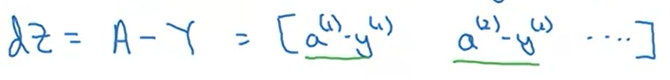 dZ = A - Y = [a⁽¹⁾-y⁽¹⁾ a⁽²⁾-y⁽²⁾ ....]